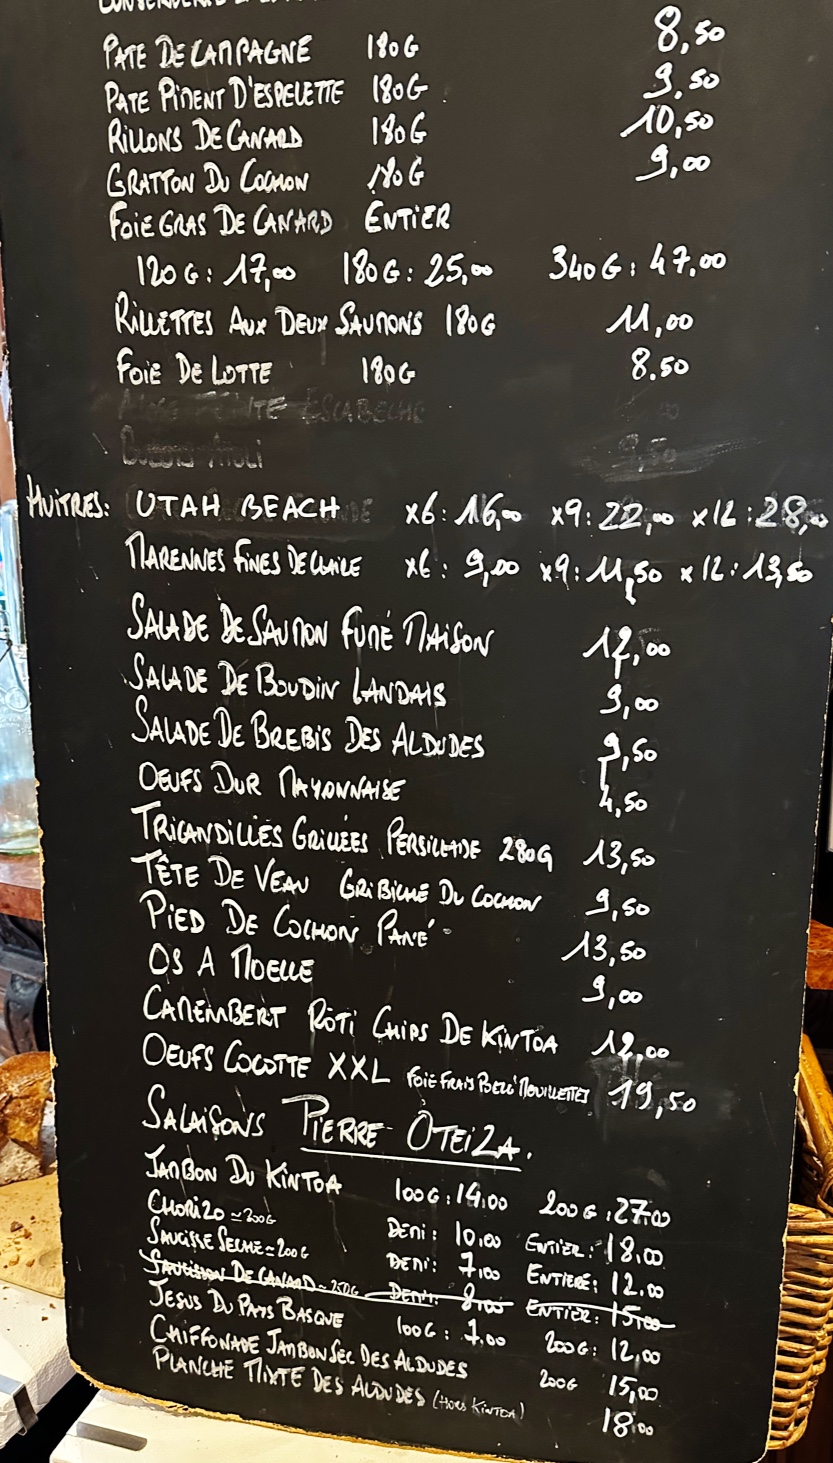 PATE DE CAMPAGNE 180G 8,50
PATE PIMENT D'ESPELETTE 180G 9.50
RILLONS DE CANARD 180G 10,50
GRATTON DU COCHON 180G 9,00
FOIE GRAS DE CANARD ENTIER
120G: 17,00 180G: 25,00 340G: 47,00
RILLETTES AUX DEUX SAUMONS 180G 11,00
FOIE DE LOTTE 180G 8.50
ESCABECHE
HUITRES: UTAH BEACH x6: 16,00 x9: 22,00 x12: 28,00
MARENNES FINES DE CLAIRE x6: 9,00 x9: 11,50 x12: 13,50
SALADE DE SAUMON FUMÉ MAISON 12,00
SALADE DE BOUDIN LANDAIS 9,00
SALADE DE BREBIS DES ALDUDES 9,50
OEUFS DUR MAYONNAISE 4,50
TRICANDILLES GRILLÉES PERSILLADE 280G 13,50
TÊTE DE VEAU GRIBICHE DU COCHON 9,50
PIED DE COCHON PANÉ 13,50
OS A MOELLE 9,00
CAMEMBERT RÔTI CHIPS DE KINTOA 12,00
OEUFS COCOTTE XXL FOIE FRAIS MOUILLETTES 19,50
SALAISONS PIERRE OTEIZA.
JAMBON DU KINTOA 100G: 14.00 200G: 27.00
CHORIZO ≃ 200G DEMI: 10,00 ENTIER: 18,00
SAUCISSE SECHE ≃ 200G DEMI: 7,00 ENTIERE: 12.00
SAUCISSON DE CANARD ~ 250G DEMI: 8,00 ENTIER: 15,00
JESUS DU PAYS BASQUE 100G: 7,00 200G: 12,00
CHIFFONADE JAMBON SEC DES ALDUDES 200G 15,00
PLANCHE MIXTE DES ALDUDES (HORS KINTOA) 18.00